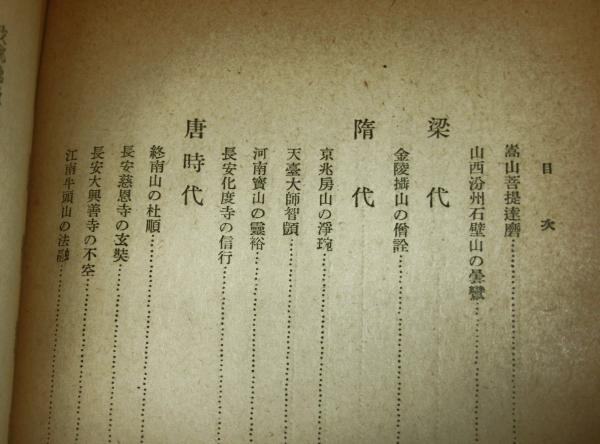 目次
嵩山菩提達磨
山西汾州石壁山の曇鸞
梁代
金陵攝山の僧詮
隋代
京兆房山の淨琬
天臺大師智顗
河南寶山の靈裕
長安化度寺の信行
唐時代
終南山の杜順
長安慈恩寺の玄奘
長安大興善寺の不空
江南牛頭山の法融